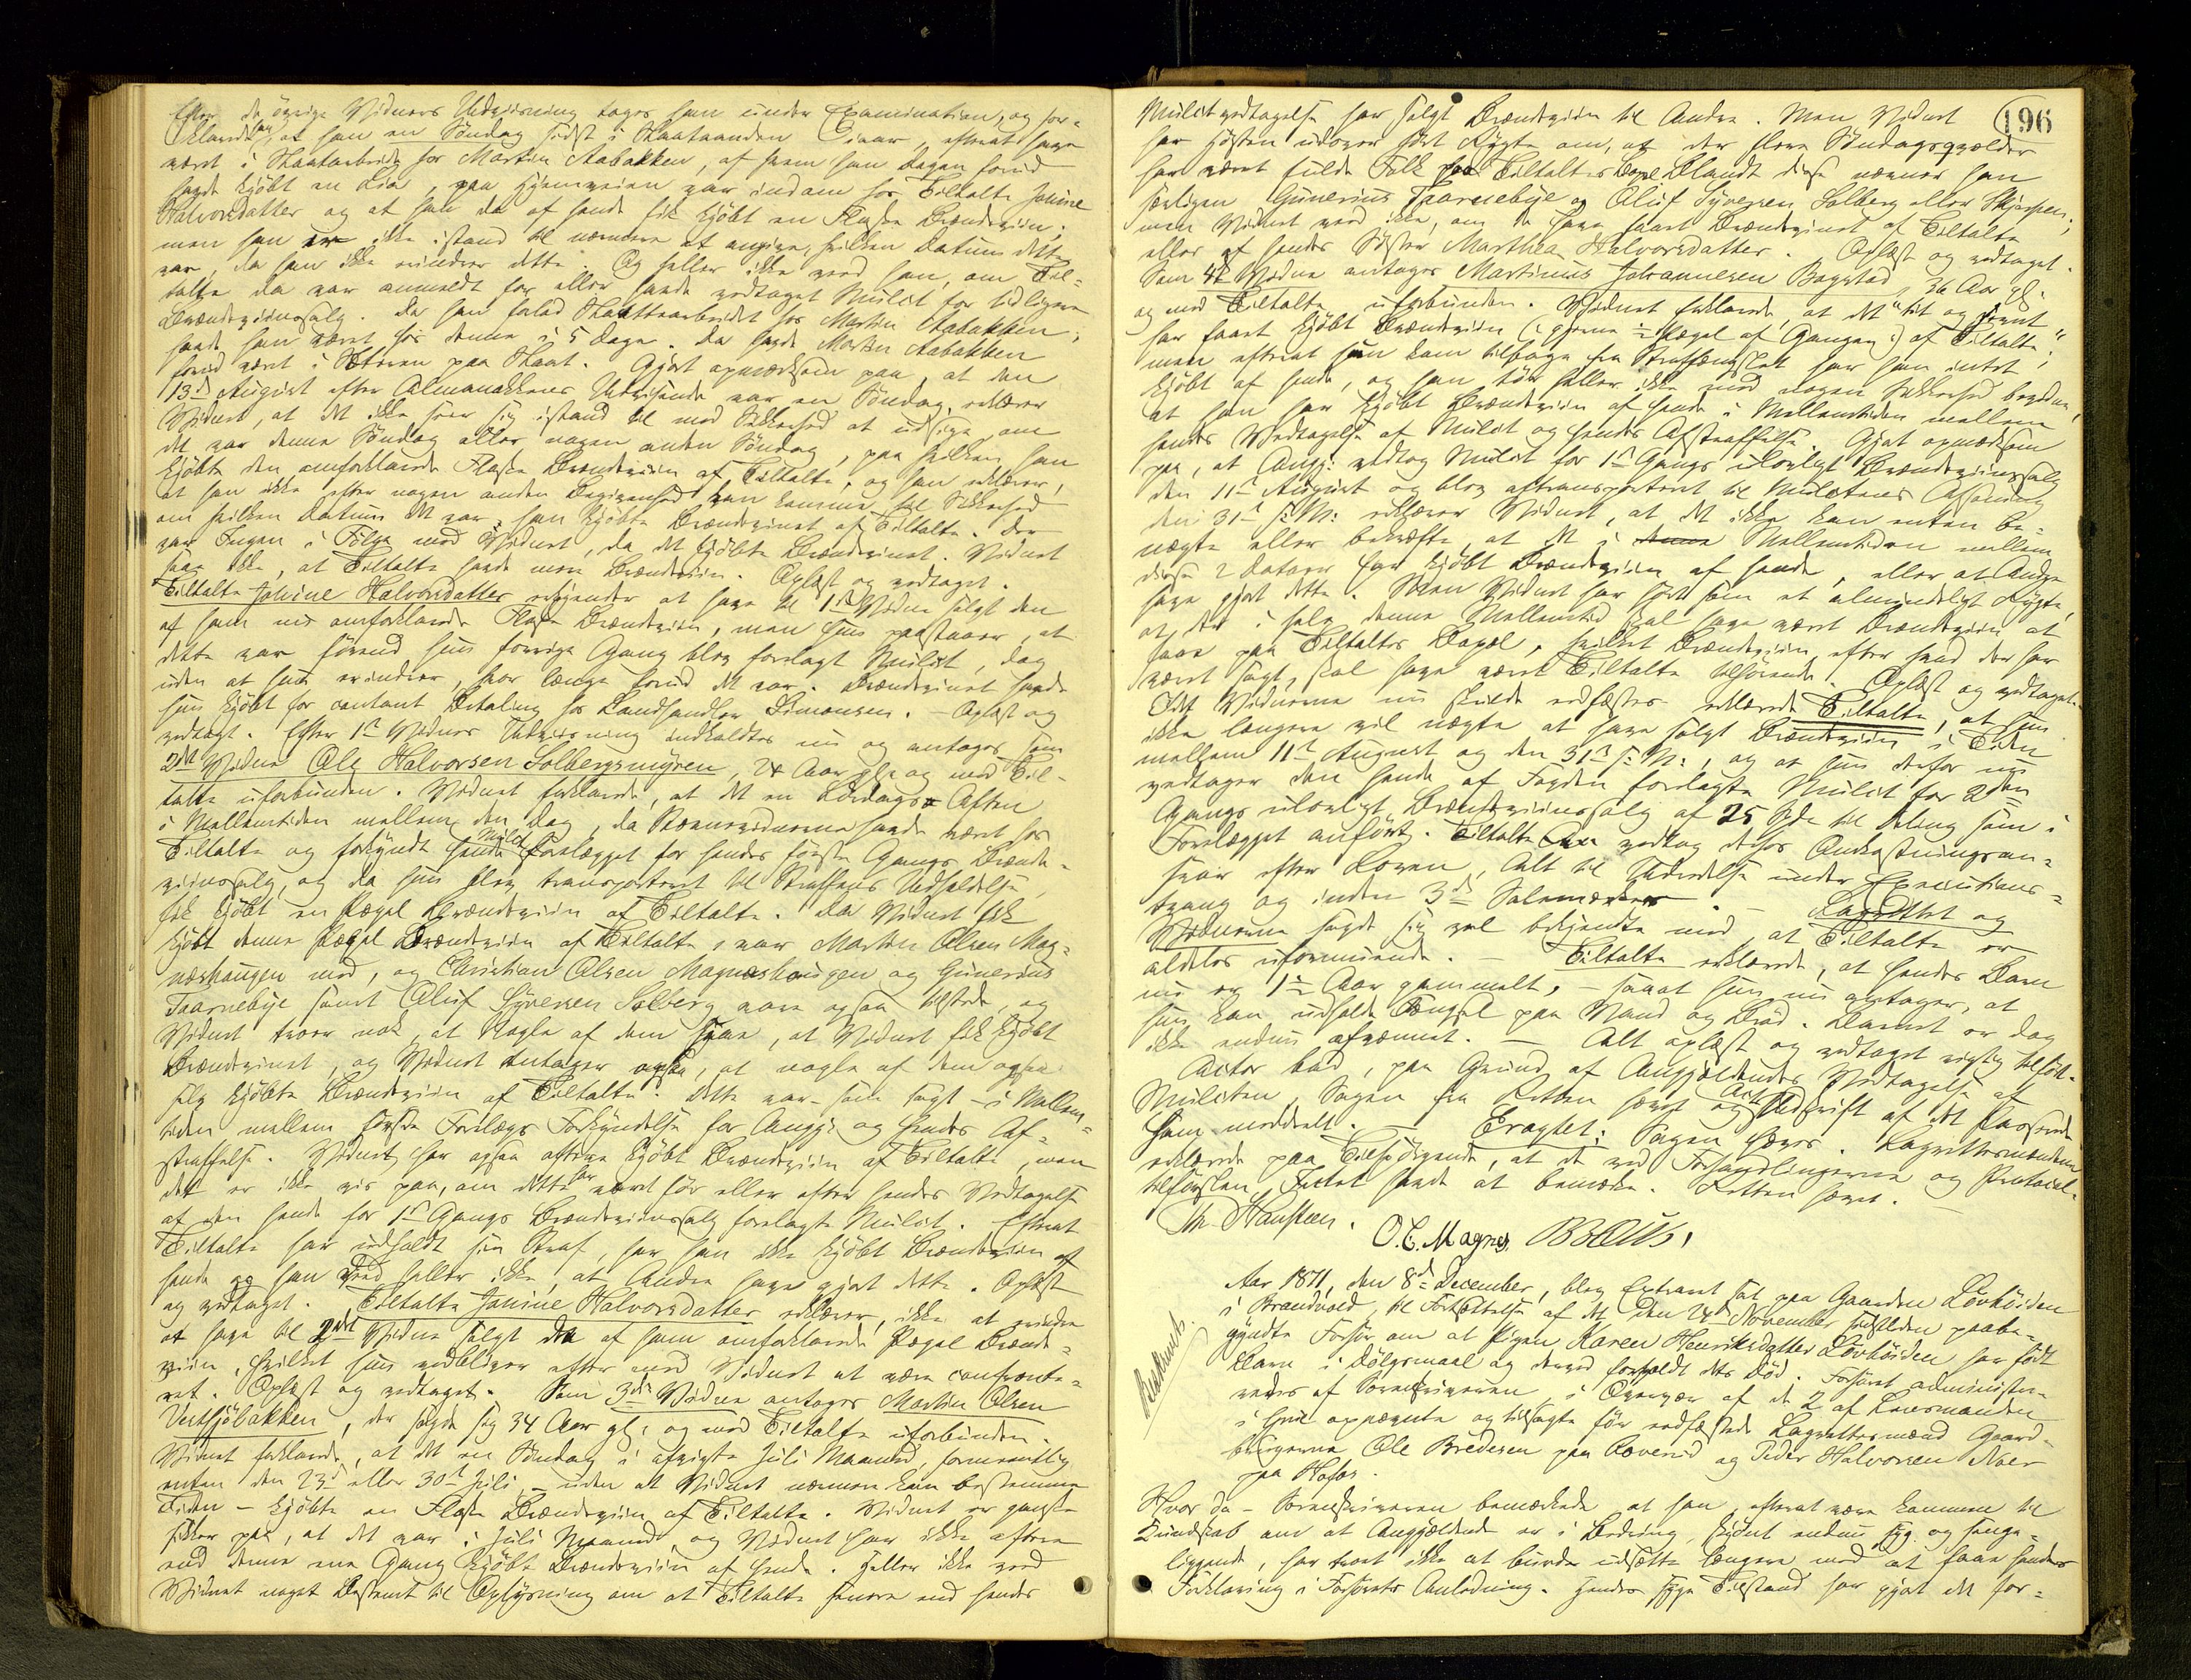 Efter de øvrige Vidners Udvisning toges han under Examination, og for-
klarede han, at han en Søndag sidst i Slaataanden iaar, efterat have
været i Slaatarbeide hos Martin Aabakken, af hvem han Dagen forud
havde kjøbt en Lia, paa Hjemveien var indom hos Tiltalte Janine
Halvorsdatter og at han da af hende fik kjøbt en Flaske Brændeviin;
men han er ikke istand til nærmere at angive, hvilken Datum dette
var, da han ikke erindrer dette. Og heller ikke veed han, om Til-
talte da var anmeldt for eller havde vedtaget Mulct for tidligere
Brændeviinssalg. Da han forlod Slaattearbeidet hos Martin Aabakken,
havde han været hos denne i 5 Dage. Da havde Martin Aabakken
forud været i Sæteren paa Slaat. Gjort opmærksom paa, at den
13de August efter Almanakkens Udvisende var en Søndag, erklærer
Vidnet, at det ikke seer sig istand til med Sikkerhed at udsige, om
det var denne Søndag eller nogen anden Søndag, paa hvilken han
kjøbte den omforklarede Flaske Brændeviin af Tiltalte, og han erklærer,
at han ikke efter nogen anden Begivenhed kan komme til Sikkerhed
om hvilken Datum det var, han kjøbte Brændevinet af Tiltalte. Der
var Ingen i Følge med Vidnet, da det kjøbte Brændevinet. Vidnet
saae ikke, at Tiltalte havde mere Brændeviin. Oplæst og vedtaget.
Tiltalte Janine Halvorsdatter erkjender at have til 1ste Vidne solgt den
af ham nu omforklarede Flaske Brændeviin, men hun paastaaer, at
dette var førend hun forrige Gang blev forelagt Mulct, dog
uden at hun erindrer, hvor længe forud det var. Brændevinet havde
hun kjøbt for contant Betaling hos Landhandler Simensen. – Oplæst og
vedtaget. Efter 1ste Vidnes Udvisning indkaldtes nu og antoges som
2det Vidne Ole Halvorsen Solbergsmyren, 24 Aar gl. og med Til-
talte uforbunden. Vidnet forklarede, at det en Lørdags Aften
i Mellemtiden mellem den Dag, da Stævnevidnerne havde været hos
Tiltalte og forkyndt hende Mulctforelægget for hendes første Gangs Brænde-
viinssalg, og da hun blev transporteret til Straffens Udholdelse,
fik kjøbt en Pægel Brændeviin af Tiltalte. Da Vidnet fik
kjøbt denne Pægel Brændeviin af Tiltalte, var Martin Olsen Mag-
næshaugen med, og Christian Olsen Magnæshaugen og Gunerius
Taarnebye samt Oluf Syversen Solberg vare ogsaa tilstede, og
Vidnet troer nok, at Nogle af dem saae, at Vidnet fik kjøbt
Brændevinet, og Vidnet antager ogsaa, at nogle af dem ogsaa
selv kjøbte Brændeviin af Tiltalte. Dette var – som sagt – i Mellem-
tiden mellem første Forelægs Forkyndelse for Angj. og hendes Af-
straffelse. Vidnet har ogsaa oftere kjøbt Brændeviin af Tiltalte, men
det er ikke vis paa, om dette har været før eller efter hendes Vedtagelse
af den hende for 1ste Gangs Brændeviinssalg forelagte Mulct. Efterat
Tiltalte har udholdt sin Straf, har han ikke kjøbt Brændeviin af
hende og han veed heller ikke, at Andre have gjort dette. Oplæst
og vedtaget. Tiltalte Janine Halvorsdatter erklærer, ikke at erindre
at have til 2det Vidne solgt den af ham omforklarede Pægel Brænde-
viin, hvilket hun vedbliver efter med Vidnet at være confronte-
ret. Oplæst og vedtaget. Som 3die Vidne antoges Martin Olsen
Vestsjøbakken, der sagde sig 34 Aar gl. og med Tiltalte uforbunden.
Vidnet forklarede, at det en Søndag i afvigte Juli Maaned, formentlig
enten den 23de eller 30te Juli, – uden at Vidnet nærmere kan bestemme
Tiden – kjøbte en Flaske Brændeviin af Tiltalte. Vidnet er ganske
sikker paa, at det var i Juli Maaned, og Vidnet har ikke oftere
end denne ene Gang kjøbt Brændeviin af hende. Heller ikke veed
Vidnet noget Bestemt til Oplysning om at Tiltalte senere end hendes
196
Mulctvedtagelse har solgt Brændeviin til Andre. Men Vidnet
har Høsten udover hørt Rygte om, at der flere Søndagsqvælder
har været fulde Folk paa Tiltaltes Bopæl. Blandt disse nævner han
særligen Gunerius Taarnebye og Oluf Syversen Solberg eller Skjerpen;
men Vidnet veed ikke, om de have faaet Brændevinet af Tiltalte
eller af hendes Søster Marthea Halvorsdatter. Oplæst og vedtaget.
Som 4de Vidne antoges Martinus Johannesen Bogstad, 36 Aar gl.
og med Tiltalte uforbunden. Vidnet forklarede, at det "tit og jevnt"
har faaet kjøbt Brændeviin (: gjerne ½ Pægel af Gangen :) af Tiltalte,
men efterat hun kom tilbage fra Straffængslet har han intet
kjøbt af hende, og han tør heller ikke med nogen Sikkerhed bevidne,
at han har kjøbt Brændeviin af hende i Mellemtiden mellem
hendes Vedtagelse af Mulct og hendes Afstraffelse. Gjort opmærksom
paa, at Angj: vedtog Mulct for 1ste Gangs ulovligt Brændeviinssalg
den 11te August og blev aftransporteret til Mulctens Afsoning
den 31te s: M: erklærer Vidnet, at det ikke kan enten be-
nægte eller bekræfte, at det i denne Mellemtiden mellem
disse 2 Datoer har kjøbt Brændeviin af hende, eller at Andre
have gjort dette. Men Vidnet har hørt som et almindeligt Rygte,
at der i selv denne Mellemtid skal have været Brændeviin at
faae paa Tiltaltes Bopæl, hvilket Brændeviin, efter hvad der har
været sagt, skal have været Tiltalte tilhørende. Oplæst og vedtaget.
Idet Vidnerne nu skulde edfæstes erklærede Tiltalte, at hun
ikke længere vil nægte at have solgt Brændeviin i Tiden
mellem 11te August og den 31te s: M:, og at hun derfor nu
vedtager den hende af Fogden forelagte Mulct for 2den
Gangs ulovligt Brændeviinssalg af 25 Spd. til Deling som i
Forelægget anført. Tiltalte vedtog derhos Omkostningsan-
svar efter Loven, Alt til Udredelse under Executions-
tvang og inden 3de Solemærker. – Lagrettet og
Vidnerne sagde sig vel bekjendte med, at Tiltalte er
aldeles uformuende. – Tiltalte erklærede, at hendes Barn
nu er 1½ Aar gammelt, – saaat hun nu antager, at
hun kan udholde Fængsel paa Vand og Brød. Barnet er dog
ikke endnu afvænnet. – Alt oplæst og vedtaget rigtig tilført.
Actor bad, paa Grund af Angjældendes Vedtagelse af
Mulcten, Sagen fra Retten hævet og Act Udskrift af det Passerede
ham meddeelt. – Eragtet: Sagen hæves. Lagrettesmændene
erklærede paa Tilspørgende, at de ved Forhandlingerne og Protocol-
tilførslen Intet havde at bemærke. Retten hævet. –
M. Hansteen. O. C. Magnes.
Aar 1871, den 8de December, blev Extraret sat paa Gaarden Løvhøiden
i Brandvold, til Fortsættelse af det den 24de November sidstleden paabe-
gyndte Forhør om at Pigen Karen Henriksdatter Løvhøiden har født
Barn i Dølgsmaal og derved forvoldt dets Død. Forhøret administre-
redes af Sorenskriveren, i Overvær af de 2 af Lensmanden
i Grue opnævnte og tilsagte før edfæstede Lagrettesmænd Gaard-
brugerne Ole Bredesen paa Røverud og Peder Halvorsen Noer
paa Hofos.
Hvor da – Sorenskriveren bemærkede, at han, efterat være kommen til
Kundskab om at Angjældende er i Bedring, skjønt endnu syg og senge-
liggende, har troet ikke at burde udsætte længere med at faae hendes
Forklaring i Forhørets Anledning. Hendes syge Tilstand har gjort det for-